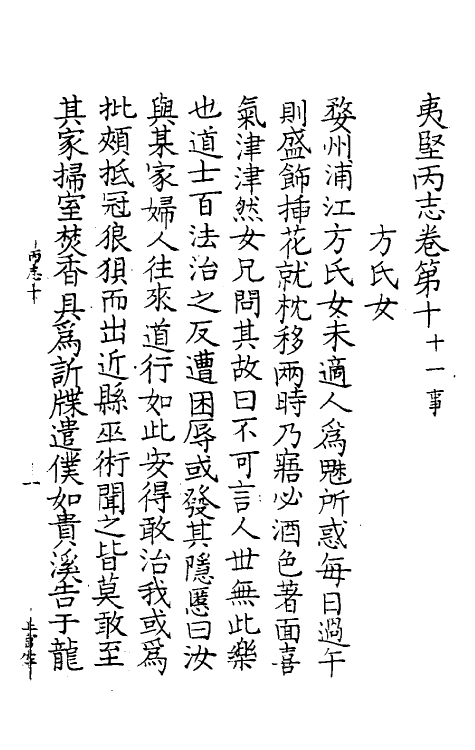 夷堅丙志卷第十十一事
方氏女
婺州浦江方氏女未適人爲魅所惑每日過午
則盛飾揷花就枕移兩時乃寤必酒色著面喜
氣津津然女兄問其故曰不可言人世無此樂
也道士百法治之反遭困辱或發其隱慝曰汝
與某家婦人往來道行如此安得敢治我或爲
批頰抵冠狼狽而出近縣巫術聞之皆莫敢至
其家掃室焚香具爲訴牒遣僕如貴溪告于龍
丙志十
一